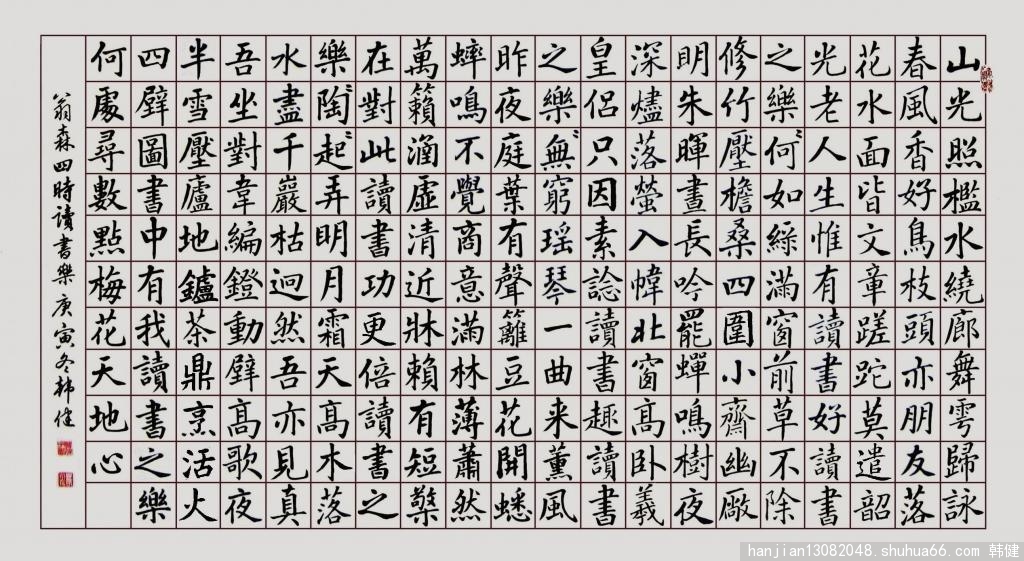 山光照檻水繞廊舞雩歸詠
春風香好鳥枝頭亦朋友落
花水面皆文章蹉跎莫遣韶
光老人生惟有讀書好讀書
之樂〻何如綠滿窗前草不除
修竹壓檐桑四圍小齋幽廠
明朱暉晝長吟罷蟬鳴樹夜
深燼落螢入幃北窗高臥羲
皇侶只因素諗讀書趣讀書
之樂〻無窮瑶琴一曲来薰風
昨夜庭葉有聲籬豆花開蟋
蟀鳴不覺商意滿林薄蕭然
萬籟涵虛清近牀賴有短檠
在對此讀書功更倍讀書之
樂陶〻起弄明月霜天高木落
水盡千巖枯迥然吾亦見真
吾坐對韋編鐙動壁高歌夜
半雪壓廬地鑪茶鼎烹活火
四壁圖書中有我讀書之樂
何處尋數點梅花天地心
翁森四時讀書樂庚寅冬韩健
hanjian13082048.shuhua66.com 韩健